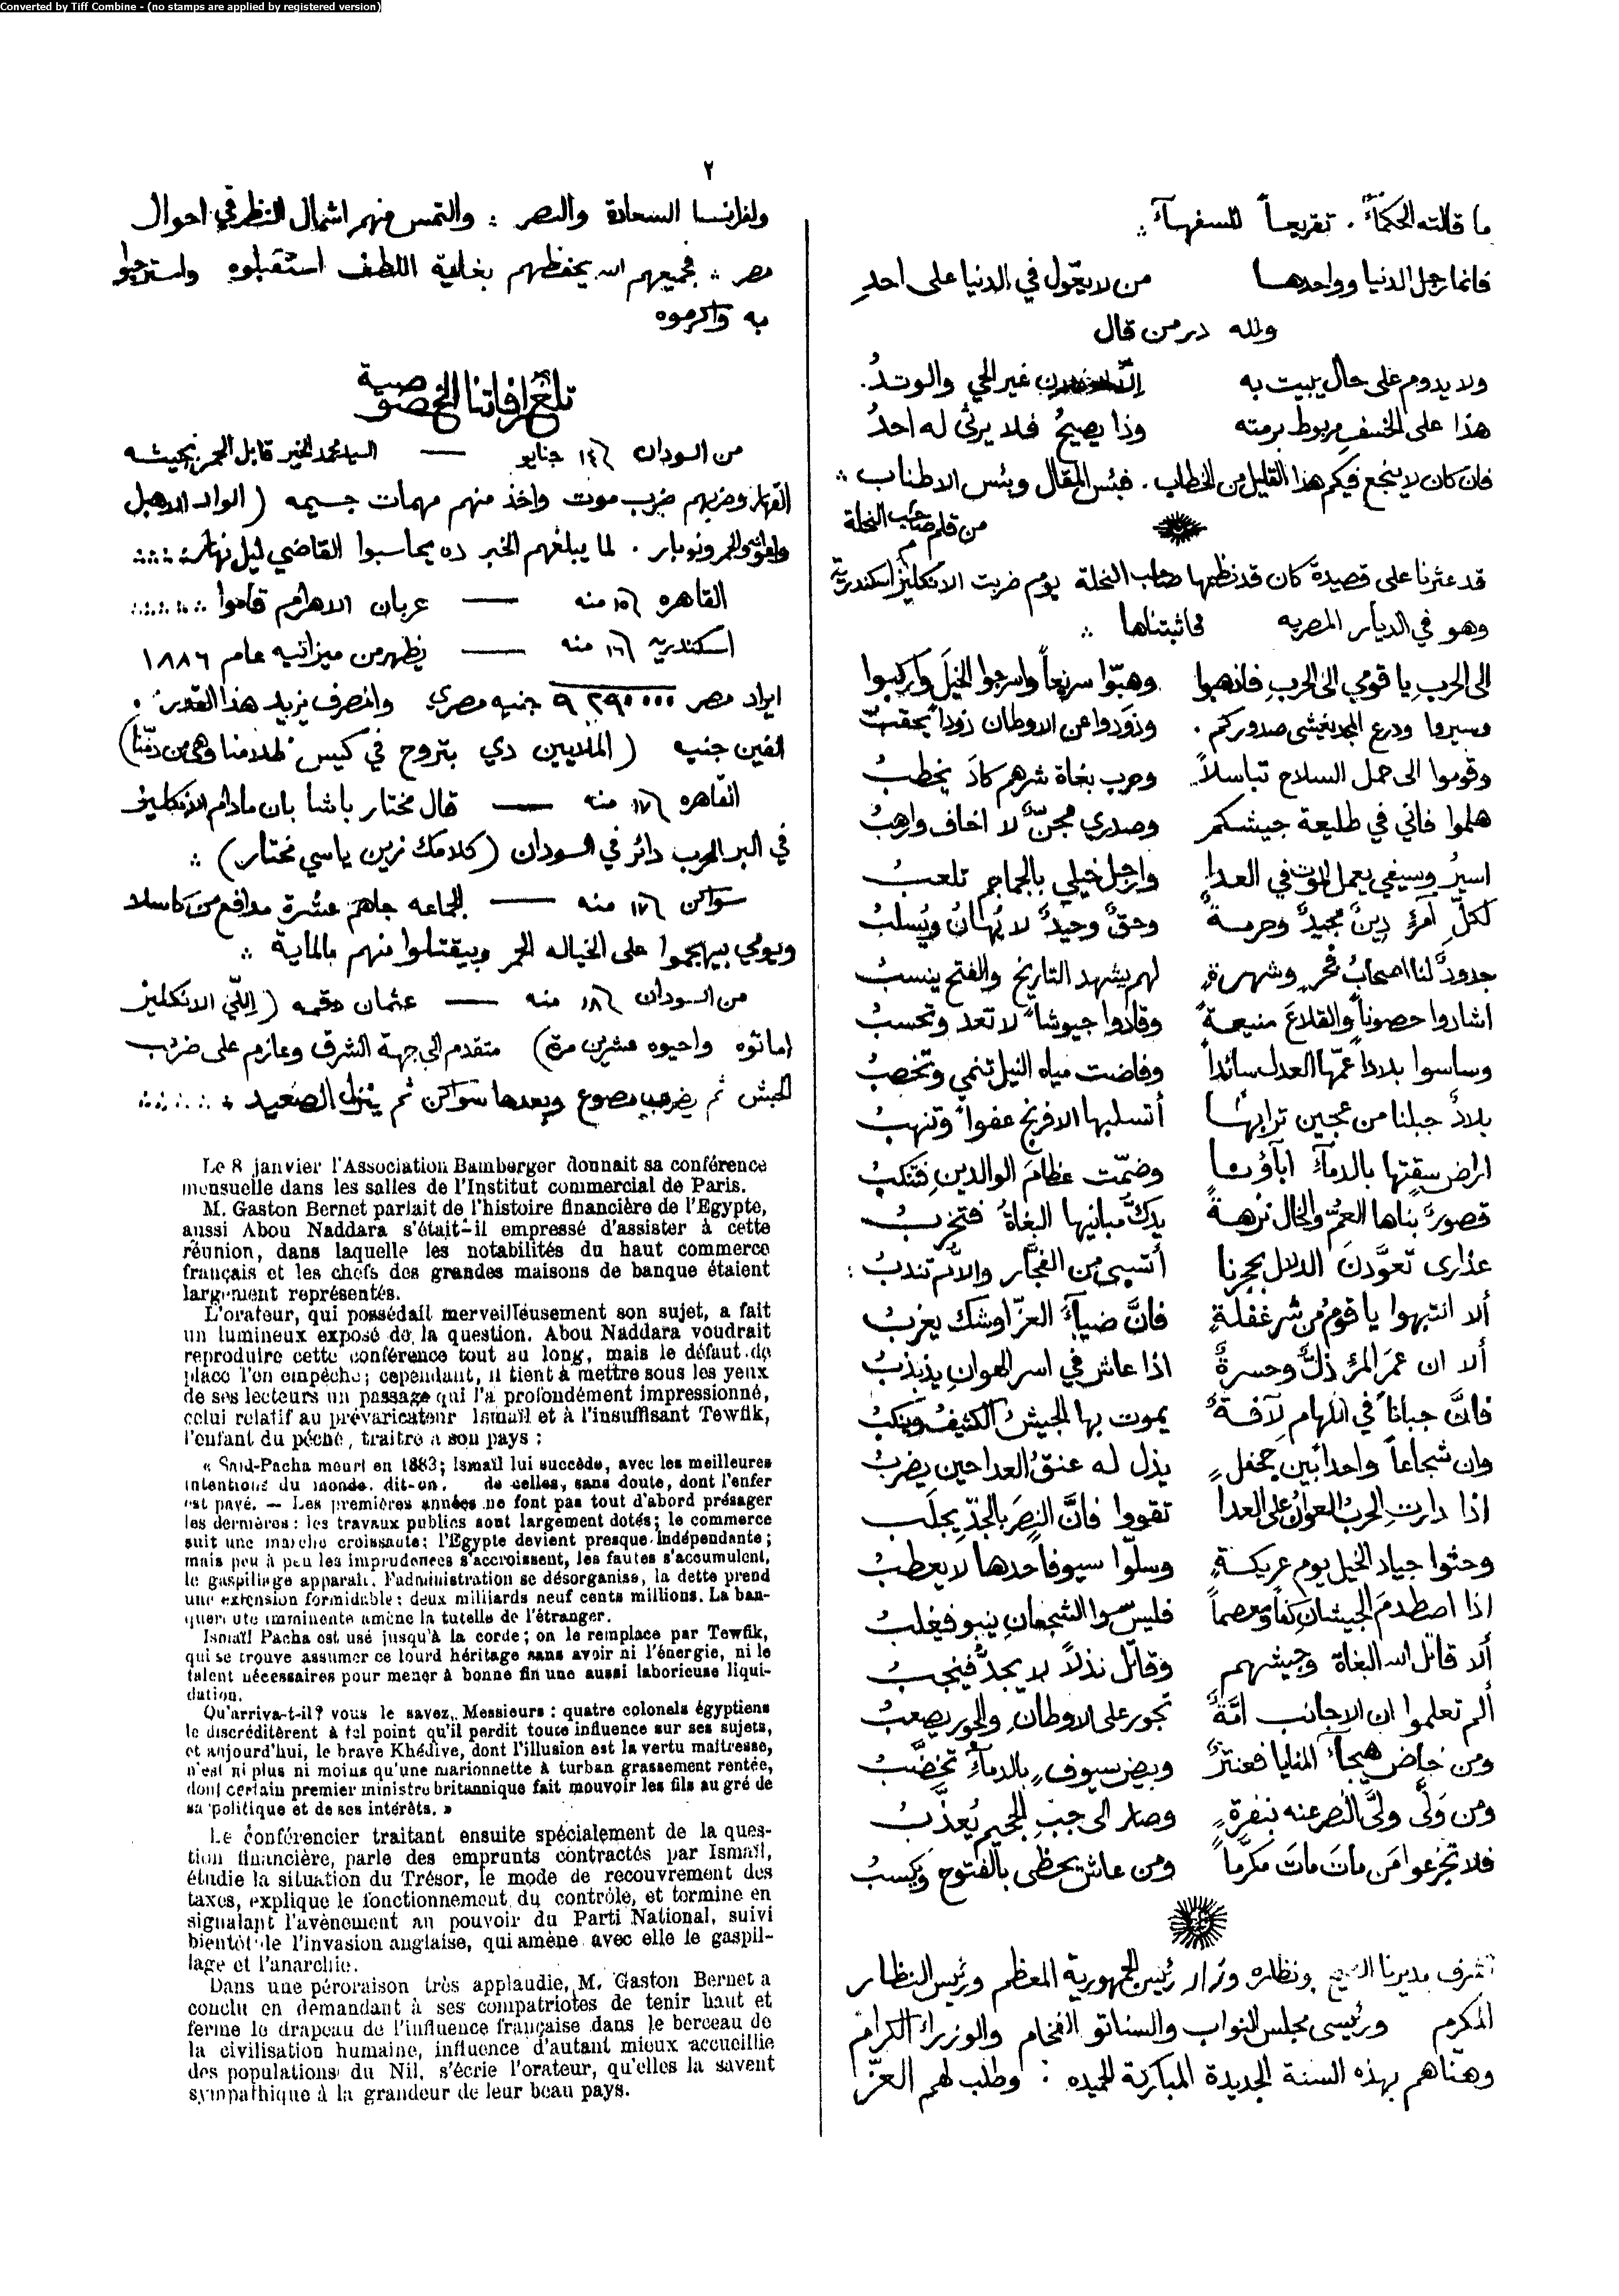 Converted by Tiff Combine - (no stamps are applied by registered version)
٢
ما قالته الحكمآء . تقريعاً للسفهآء ∴
فانما رجل الدنيا وواحدها من لا يعوّل في الدنيا على احدِ
ولله در من قال
ولا يدوم على حال يبيت به إلّا غير الحي والوتدُ.
هذا على الخسف مربوط برمته وذا يصيحُ فلا يرثي له احدُ
فان كان لا ينجع فيكم هذا القليل من الخطاب . فبئس المقال وبئس الاطناب ∴
من قلم صاحب النحلة
قد عثرنا على قصيدة كان قد نظمها صاحب النحلة يوم ضربت الانكليز اسكندرية
وهو في الديار المصريه فاثبتناها ∴
الى الحرب يا قومي الى الحربِ فاذهبوا وهبّوا سريعاً واسرجوا الخيلَ واركبوا
وسيروا ودرع المجد يغشى صدوركم . وذودوا عن الاوطان ذوداً
وقوموا الى حمل السلاح تباسلاً وحرب بغاة شرهم كادَ يخطبُ
هلموا فاني في طليعة جيشكم وصدري مجنّ لا اخاف وارهبُ
اسيرُ وسيفي يعمل الموت في العدا وارجل خيلي بالجماجم تلعبُ
لكلّ آمرءٍ دينٌ مجيدٌ وحرمةٌ وحقٌ وحيدٌ لا يُهانُ ويُسلبُ
جدودٌ لنا اصحابُ فخرٍ وشهرةٍ لهم يشهد التاريخ والفتح ينسبُ
اشادوا حصوناً والقلاعَ منيعةً وقادوا جيوشاً لا تعد وتحسبُ
وساسوا بلاداً عمّها العدل سائداً وفاضت مياه النيل تنمي وتخصبُ
بلادٌ جبلنا من عجين ترابها أتسلبها الافرنج عفواً وتنهبُ
اراضٍ سقتها بالدمآء ابآؤنا وضمّت عظامَ الوالدين فتنكبُ
قصورٌ بناها العمّ والخال نزهةً يدكّ مبانيها البغاةُ فتخربُ
عذارى تعوَّدنَ الدلال بحجرنا أتسبى من الفجّار والأمّ تندبُ :
ألا انتبهوا يا قومُ من شر غفلةٍ فانَّ ضيآءَ العزّ اوشك يغربُ
ألا ان عمرَ المرء ذلٌّ وحسرةٌ اذا عاش في اسر الهوانِ يذبذبُ
فانَّ جباناً في اللهام لآفةٌ يموت بها الجيشُ الكثيفُ وينكبُ
وان شجاعاً واحداً بين جحفلٍ يذل له عنقُ العدا حين يضربُ
اذا دارتِ الحربُ العوانُ على العدا تقووا فانَّ النصرَ بالجدّ يجلَب
وحثوا جياد الخيل يوم عريكةٍ وسلّوا سيوفاً حدها لا يعطبُ
اذا اصطدمَ الجيشانِ فليس سوا الشجعانِ ينبو فيغلبُ
ألا قاتل الله البغاة وجيشهم وقاتل نذلاً لا يجدُّ فينجبُ
ألم تعلموا ان الاجانب امّةٌ تجور على الاوطانِ والجور يصعبُ
ومن خاض هيجآءَ المنايا فعنترٌ وبيض سيوفٍ بالدمآءِ تخضّبُ
ومن ولّى ولّى النصر عنه بنفرةٍ وصار الى جبّ الجحيم يُعذّبُ
فلا تجزعوا مَن ماتَ ماتَ مكرَّماً ومن عاش يحظى بالفتوحِ ويكسبُ
تشرف مديرنا ونظاره وزار رئيس الجمهورية المعظم ورئيس النظار
المكرم ورئيسي مجلس النواب والسناتو الفخام والوزراء الكرام
وهناهم بهذه السنة الجديدة المباركة الحميده : وطلب لهم العزّ
ولفرانسا السعادة والنصر : والتمس منهم اشمال النظر في احوال
مصر ∴ فجميعهم الله يحفظهم بغاية اللطف استقبلوه
به واكرموه
تلغرافاتنا الخصوصية
من السودان ١٤ جنايو — السيد محمد الخير قابل الحمر بجيشه
القهار وضربهم ضرب موت واخذ منهم مهمات جسيمه (الواد الاهبل
والحمر ونوبار . لما يبلغهم الخبر ده يحاسبوا القاضي ليل نهار
القاهره ١٥ منه — عربان الاهرام قاموا
اسكندريه ١٦ منه — يظهر من ميزانيه عام ١٨٨٦
ايراد مصر ٩٢٩٠٠٠٠ جنيه مصري والمصرف يزيد هذا القدر .
الفين جنيه (الملايين دي بتروح في كيس ظلامنا وهي من دمّنا)
القاهره ١٧ منه — قال مختار باشا بان مادام الانكليز
في البر الحرب دائر في السودان (كلامك زين ياسي مختار) ∴
سواكن ١٧ منه — الجماعه جاهم عشرة مدافع من كاسلا
ويومي بيهجموا على الخياله الحمر وبيقتلوا منهم بالماية ∴
من السودان ١٨ منه — عثمان دقمه (اللّي الانكليز
اماتوه واحيوه عشرين مرة) متقدم الى جهة الشرق وعازم على ضرب
الحبش ثم يضرب مصوع وبعدها سواكن ثم ينزل الصعيد
Le 8 janvier l'Association Bamberger donnait sa conférence
mensuelle dans les salles de l'Institut commercial de Paris.
M. Gaston Bernet parlait de l'histoire financière de l'Egypte,
aussi Abou Naddara s'était-il empressé d'assister à cette
réunion, dans laquelle les notabilités du haut commerce
français et les chefs des grandes maisons de banque étaient
largement représentés.
L'orateur, qui possédait merveilleusement son sujet, a fait
un lumineux exposé de la question. Abou Naddara voudrait
reproduire cette conférence tout au long, mais le défaut de
place l'en empêche; cependant, il tient à mettre sous les yeux
de ses lecteurs un passage qui l'a profondément impressionné,
celui relatif au prévaricateur Ismaïl et à l'insuffisant Tewfik,
l'enfant du péché, traitre a son pays :
« Said-Pacha meurt en 1883; Ismaïl lui succède, avec les meilleures
intentions du monde, dit-on, de celles, sans doute, dont l'enfer
est pavé. — Les premières années ne font pas tout d'abord présager
les dernières : les travaux publics sont largement dotés; le commerce
suit une marche croissante; l'Egypte devient presque indépendante;
mais peu à peu les imprudences s'accroissent, les fautes s'accumulent,
le gaspillage apparaît, l'administration se désorganise, la dette prend
une extension formidable : deux milliards neuf cents millions. La ban-
queroute imminente amène la tutelle de l'étranger.
Ismaïl Pacha est usé jusqu'à la corde; on le remplace par Tewfik,
qui se trouve assumer ce lourd héritage sans avoir ni l'énergie, ni le
talent nécessaires pour mener à bonne fin une aussi laborieuse liqui-
dation.
Qu'arriva-t-il? vous le savez, Messieurs : quatre colonels égyptiens
le discréditèrent à tel point qu'il perdit toute influence sur ses sujets,
et aujourd'hui, le brave Khédive, dont l'illusion est la vertu maîtresse,
n'est ni plus ni moins qu'une marionnette à turban grassement rentée,
dont certain premier ministre britannique fait mouvoir les fils au gré de
sa politique et de ses intérêts. »
Le conférencier traitant ensuite spécialement de la ques-
tion financière, parle des emprunts contractés par Ismaïl,
étudie la situation du Trésor, le mode de recouvrement des
taxes, explique le fonctionnement du contrôle, et termine en
signalant l'avènement au pouvoir du Parti National, suivi
bientôt de l'invasion anglaise, qui amène avec elle le gaspil-
lage et l'anarchie.
Dans une péroraison très applaudie, M. Gaston Bernet a
conclu en demandant à ses compatriotes de tenir haut et
ferme le drapeau de l'influence française dans le berceau de
la civilisation humaine, influence d'autant mieux accueillie
des populations du Nil, s'écrie l'orateur, qu'elles la savent
sympathique à la grandeur de leur beau pays.